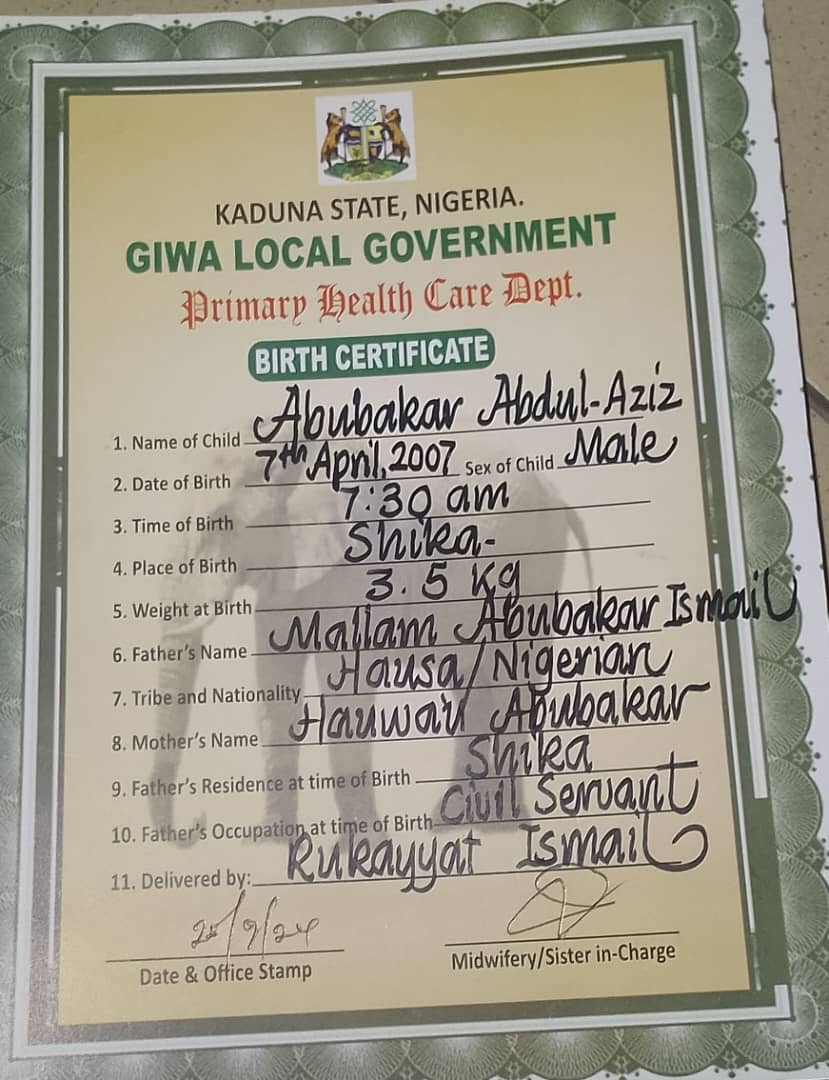 KADUNA STATE, NIGERIA.
GIWA LOCAL GOVERNMENT
Primary Health Care Dept.
BIRTH CERTIFICATE
1. Name of Child Abubakar Abdul-Aziz
2. Date of Birth 7th April, 2007 Sex of Child Male
3. Time of Birth 7:30 am
4. Place of Birth Shika-
5. Weight at Birth 3.5 Kg
6. Father's Name Mallam Abubakar Ismail
7. Tribe and Nationality Hausa/Nigerian
8. Mother's Name Hauwa'u Abubakar
9. Father's Residence at time of Birth Shika
10. Father's Occupation at time of Birth Civil Servant
11. Delivered by: Rukayyat Ismail
/9/24
Date & Office Stamp Midwifery/Sister in-Charge